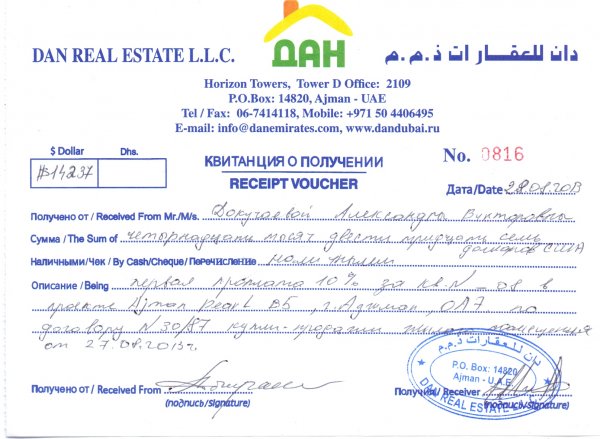 DAN REAL ESTATE L.L.C.
ДАН
دان للعقارات ذ.م.م
Horizon Towers, Tower D Office: 2109
P.O.Box: 14820, Ajman - UAE
Tel / Fax: 06-7414118, Mobile: +971 50 4406495
E-mail: info@danemirates.com, www.dandubai.ru
$ Dollar
Dhs.
$14237
КВИТАНЦИЯ О ПОЛУЧЕНИИ
RECEIPT VOUCHER
No. 0816
Дата/Date 28.08.2013
Получено от / Received From Mr./M/s. Докучаевой Александры Викторовны
Сумма / The Sum of четырнадцать тысяч двести тридцать семь
долларов США
Наличными/Чек / By Cash/Cheque/Перечисление наличными
Описание / Being первая проплата 10% за кв. N - 08 в
проекте Ajman Pearl B5, г. Аджман, ОАЭ по
договору N 30/87 купли-продажи жилого помещения
от 27.08.2013г.
دان للعقارات ذ.م.م
P.O. Box: 14820
Ajman - U.A.E
DAN REAL ESTATE L.L.C.
Получено от / Received From
(подпись/signature)
Получил/ Receiver
(подпись/signature)